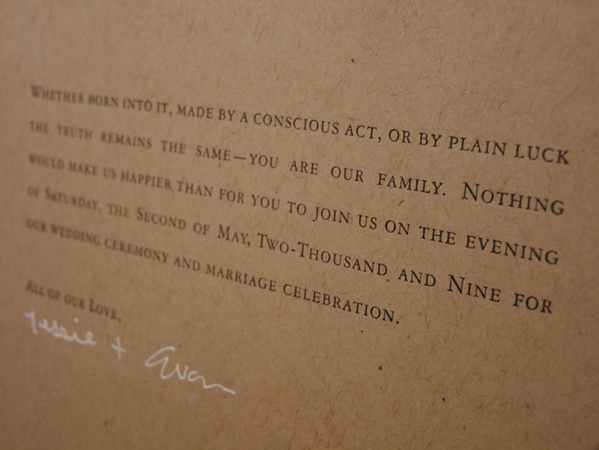 Whether born into it, made by a conscious act, or by plain luck
the truth remains the same—you are our family. Nothing
would make us happier than for you to join us on the evening
of Saturday, the Second of May, Two-Thousand and Nine for
our wedding ceremony and marriage celebration.
All of our Love,
Jessie + Evan